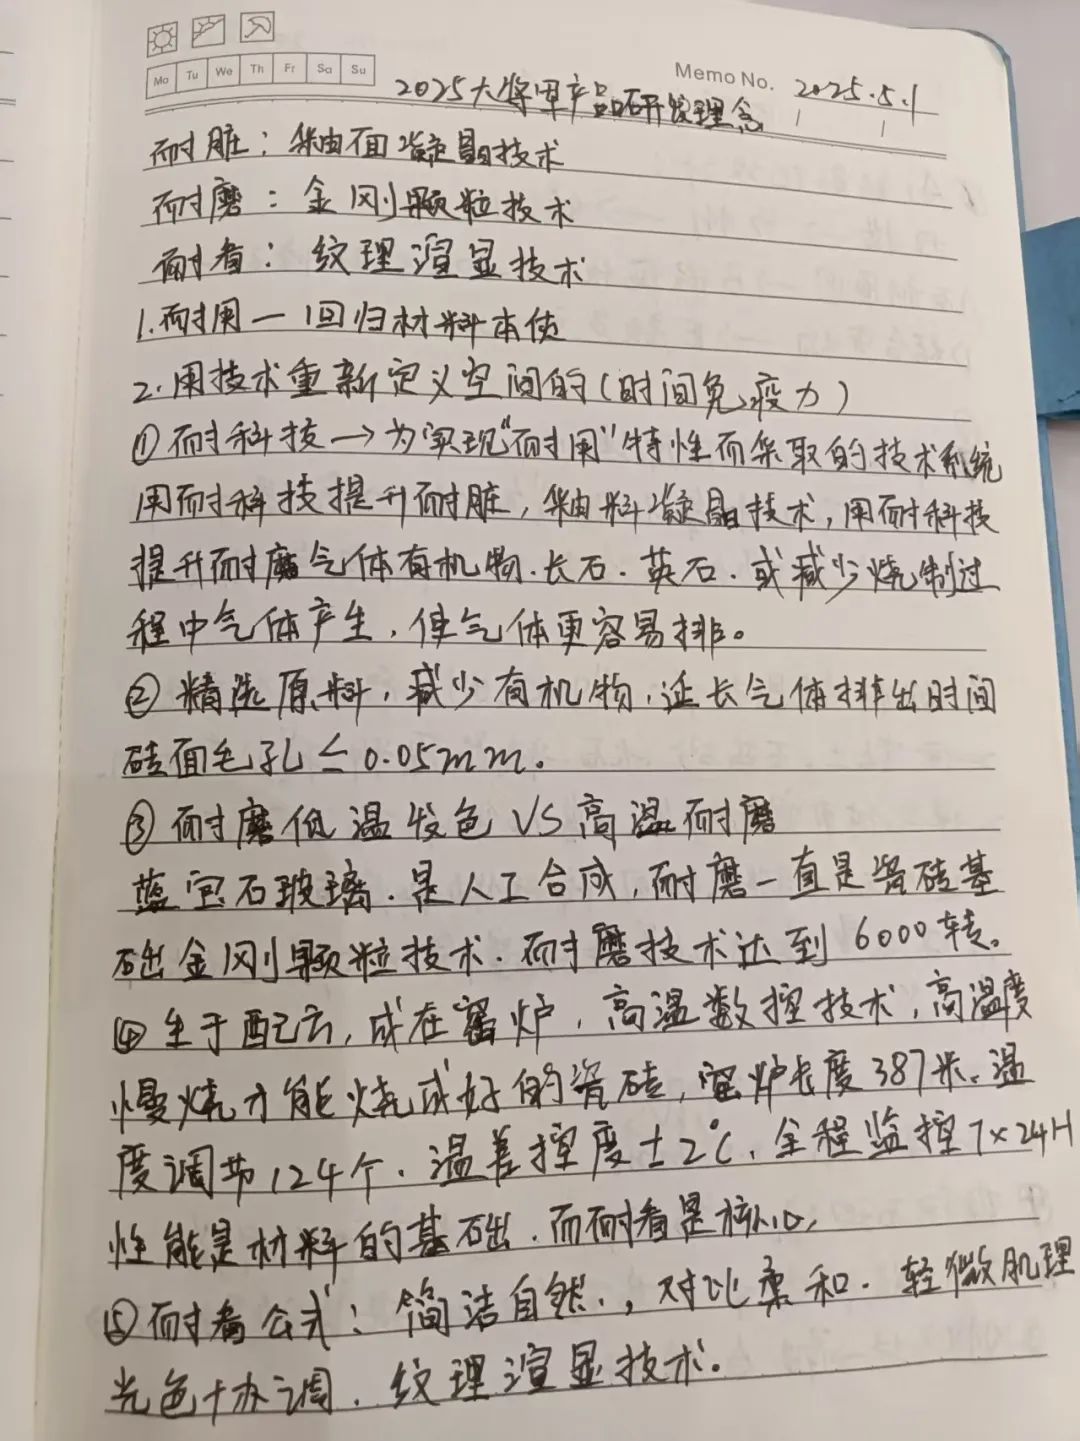 Mo Tu We Th Fr Sa Su
Memo No. 2025.5.1
2025大将军产品研发理念
耐脏：釉面凝晶技术
耐磨：金刚颗粒技术
耐看：纹理渲显技术
1.耐用一回归材料本质
2.用技术重新定义空间的(时间免疫力)
①耐科技→为实现"耐用"特性而采取的技术系统
用耐科技提升耐脏，釉料凝晶技术，用耐科技
提升耐磨气体有机物.长石.英石.或减少烧制过
程中气体产生，使气体更容易排。
②精选原料，减少有机物，延长气体排出时间
砖面毛孔≤0.05mm.
③耐磨低温发色VS高温耐磨
蓝宝石玻璃.是人工合成，耐磨一直是瓷砖基
础金刚颗粒技术.耐磨技术达到6000转。
④生于配方，成在窑炉，高温数控技术，高温度
慢烧才能烧成好的瓷砖，窑炉长度387米.温
度调节124个.温差控度±2℃.全程监控7×24H
性能是材料的基础.而耐看是核心,
⑤耐看公式：简洁自然.，对比柔和.轻微肌理
光色十协调.纹理渲显技术。